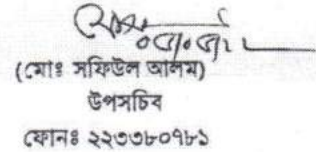 (মোঃ সফিউল আলম)
উপসচিব
ফোনঃ ২২৩৩৮০৭৮১